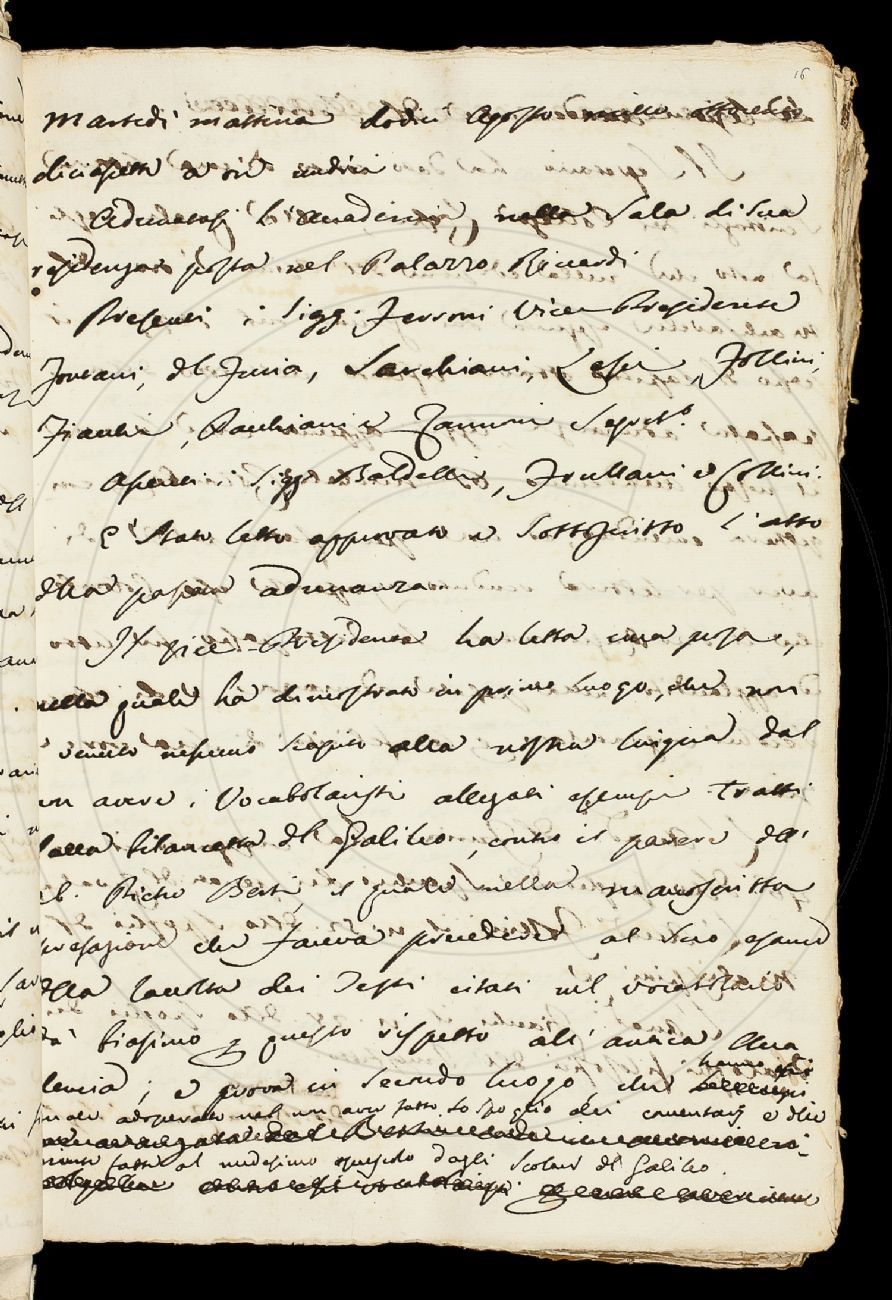 16
Martedì mattina dodici Agosto mille ottocento
diciassette a ore undici
Adunatasi l'Accademia, nella Sala di sua
residenza posta nel Palazzo Riccardi
Presenti i Sigg. Ferroni Vice-Presidente
Fontani, del Furia, Sarchiani, Lessi, Follini,
Fiacchi, Pacchiani e Zannoni Segret.º
Assenti i Sigg. Baldelli, Frullani e Collini.
È stato letto approvato e sottoscritto l'atto
della passata adunanza
Il vice-Presidente ha letta una prosa,
nella quale ha dimostrato in primo luogo, che non
è venuto nessuno scapito alla nostra lingua dal
non avere i Vocabolaristi allegati esempi tratti
dalla bilancetta del Galileo, contro il parere dell'
Ab. Pietro Berti, il quale nella manoscritta
prefazione che faceva precedere al suo esame
della raccolta dei Testi citati nel vocabolario
dà biasimo p questo rispetto all'antica Acca
demia; e prova in secondo luogo, che hanno gli
adoperato nel non aver fatto lo spoglio dei comentarj e delle
fatte al medesimo opuscolo dagli Scolari del Galileo.